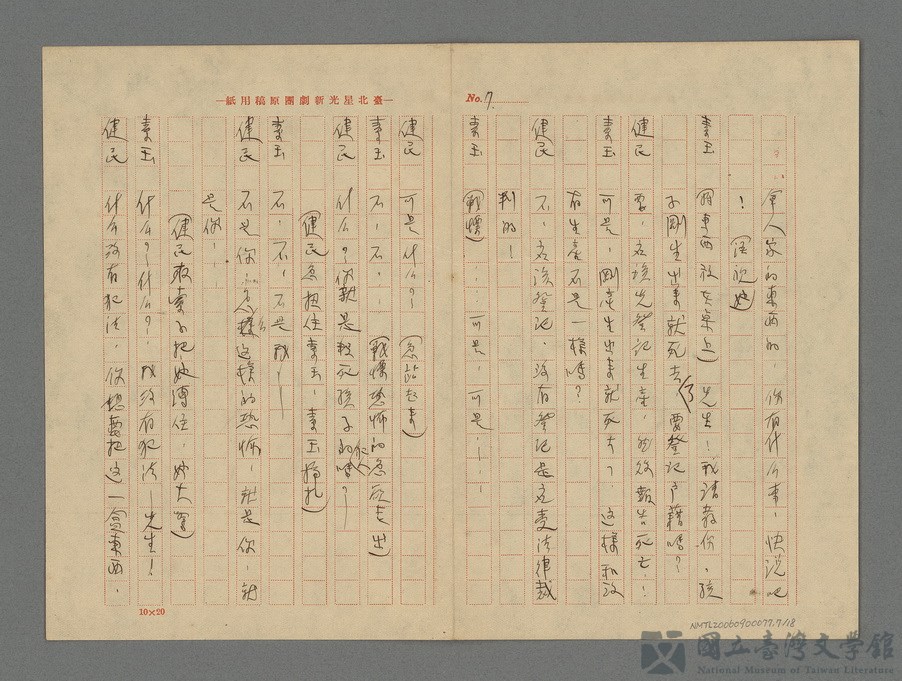 No. 7.
家人家的東西的,你有什么事,快說吧
!(注視她)
素玉 (把東西放在桌上)先生!我請教你,孩
子剛生出来就死去了,要登記戶籍嗎?
健民 要,应該先登記生產,然後報告死亡!
素玉 可是,剛產生出来就死去了,這樣和沒
有生產不是一樣嗎?
健民 不,应該登記,沒有登記是应受法律裁
判的!
素玉 (戰慄)……可是,可是……
—臺北星光新劇團原稿用紙—
健民 可是什么?(急站起来)
素玉 不,不,(戰慄恐怖的急欲走出)
健民 什么?你就是殺死孩子的犯人嗎?
(健民急扭住素玉,素玉掙扎)
素玉 不,不,不是我!
健民 不是你怎么這樣的恐怖,就是你,就
是你!
(健民取索子把她縛住,她大哭)
素玉 什么?什么?我沒有犯法!先生!
健民 什么沒有犯法,你想要把這一盒東西,
10×20
NMTL20060900077.7/18
國立臺灣文學館
National Museum of Taiwan Literature